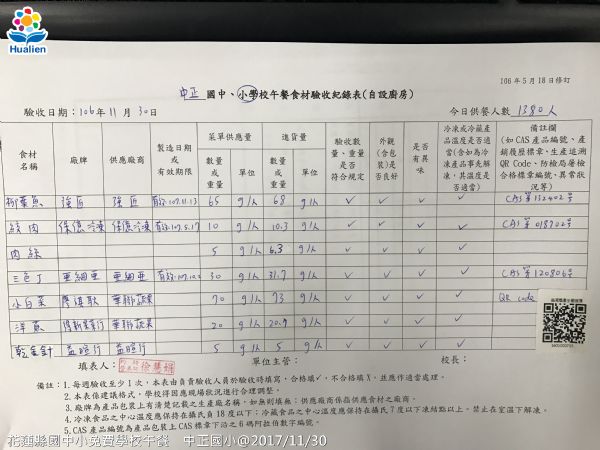 Hualien
106 年 5 月 18 日修訂
中正 國中、小學校午餐食材驗收紀錄表(自設廚房)
驗收日期：106年11月30日 今日供餐人數 1380人
食材名稱 廠牌 供應廠商 製造日期或有效期限 菜單供應量 進貨量 驗收數量、重量是否符合規定 外觀(含包裝)是否良好 是否有異味 冷凍或冷藏產品溫度是否適當(含如為冷凍產品事先解凍，其溫度是否適當) 備註欄(如 CAS 產品編號、產銷履歷標章、生產追溯 QR Code、防檢局屠檢合格標章編號、異常狀況等)
數量或重量 單位 數量或重量 單位
柳葉魚 強匠 強匠 有效107.11.13 65 g/人 68 g/人 ✓ ✓ ✓ ✓ CAS第132402号
絞肉 保億冷凍 保億冷凍 有效107.5.17 10 g/人 10.3 g/人 ✓ ✓ ✓ ✓ CAS第018702号
肉絲 5 g/人 6.3 g/人 ✓ ✓ ✓ ✓
三色丁 亜細亜 亜細亜 30 g/人 31.7 g/人 ✓ ✓ ✓ ✓ CAS第120806号
小白菜 華聯蔬果 70 g/人 73 g/人 ✓ ✓ ✓ ✓ QR code
洋蔥 華聯蔬果 20 g/人 20.9 g/人 ✓ ✓ ✓ ✓
乾金針 益暄行 益暄行 5 g/人 5 g/人 ✓ ✓ ✓ ✓
填表人： 徐慧娟 單位主管： 校長：
備註：1.每週驗收至少 1 次，本表由負責驗收人員於驗收時填寫，合格填✓，不合格填 X，並應作適當處理。
2.本表係建議格式，學校得因應現場狀況進行合理調整。
3.廠牌為產品包裝上有清楚記載之生產廠名稱，如無則填無；供應廠商係指供應食材之廠商。
4.冷凍食品之中心溫度應保持在攝氏負 18 度以下；冷藏食品之中心溫度應保持在攝氏 7 度以下凍結點以上，禁止在室溫下解凍。
5.CAS 產品編號為產品包裝上 CAS 標章下沿之 6 碼阿拉伯數字編號。
花蓮縣國中小免費學校午餐 中正國小@2017/11/30